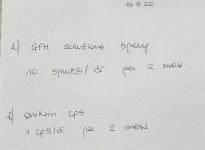 15.3.26
1) GFM soluzione spray
10 spruzzi/dì per 2 mesi
2) cps
1 cps/dì per 2 mesi